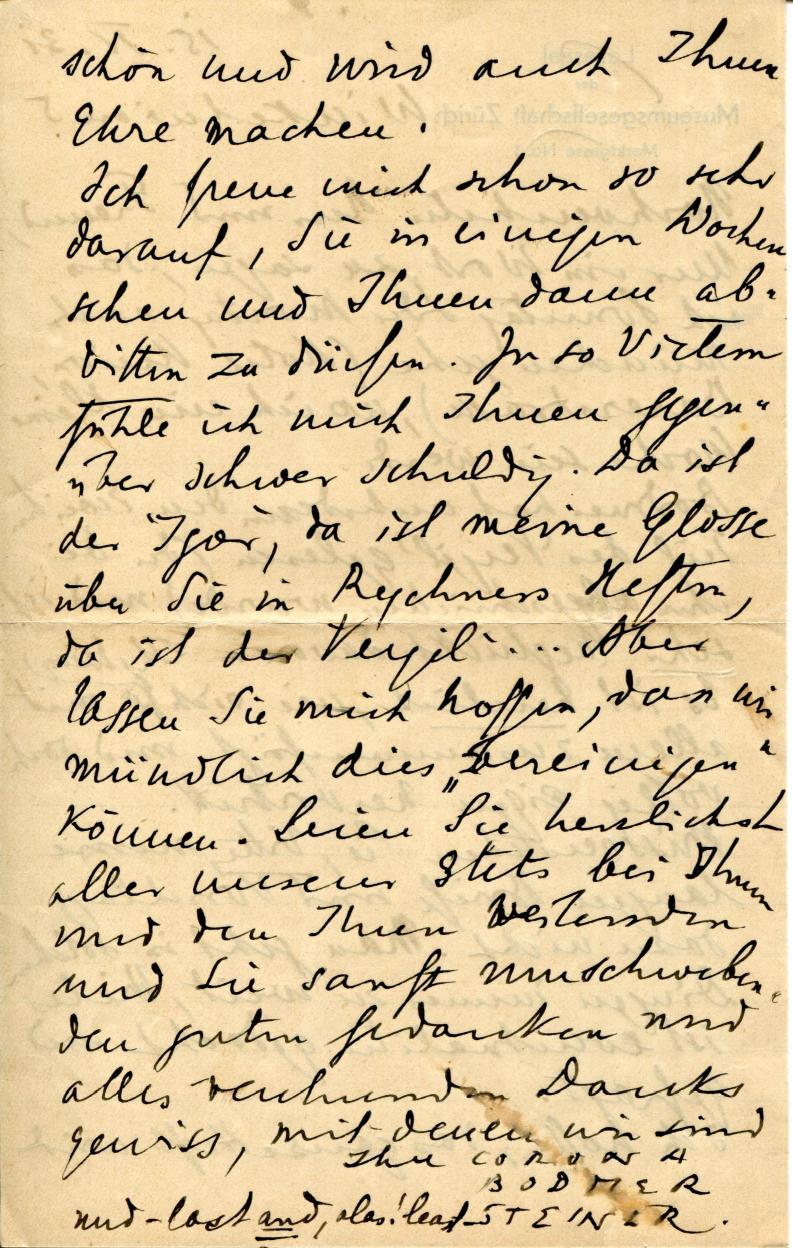 schön und wird auch Ihnen
Ehre machen.
Ich freue mich schon so sehr
darauf, Sie in einigen Wochen
sehen und Ihnen dann ab-
bitten zu dürfen. In so Vielem
fühle ich mich Ihnen gegen-
über schwer schuldig. Da ist
der Igor, da ist meine Glosse
über Sie in Rychners Heften,
da ist der Vergil ... Aber
lassen Sie mich hoffen, dass wir
mündlich dies „bereinigen"
können. Seien Sie herzlichst
aller unserer stets bei Ihnen
und den Ihren weilenden
und Sie sanft umschweben-
den guten Gedanken und
alles Danks
gewiss, mit denen wir sind
Ihre CORONA
BODMER
und - last and, alas! least - STEINER.